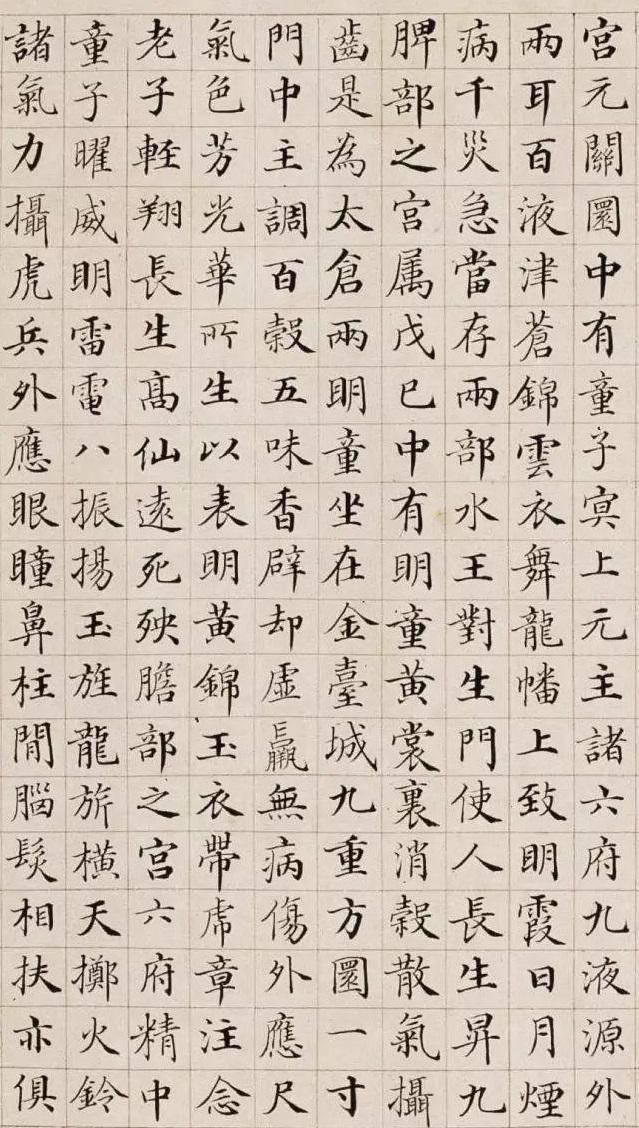 宮元關圓中有童子冥上元主諸六府九液源外
兩耳百液津蒼錦雲衣舞龍幡上致明霞日月煙
病千災急當存兩部水王對生門使人長生昇九
脾部之宮属戊巳中有明童黃裳裏消穀散氣攝
齒是為太倉兩明童坐在金臺城九重方圓一寸
門中主調百穀五味香辟却虛羸無病傷外應尺
氣色芳光華所生以表明黃錦玉衣帶虎章注念
老子輕翔長生高仙遠死殃膽部之宮六府精中
童子曜威明雷電八振揚玉旌龍旂橫天擲火鈴
諸氣力攝虎兵外應眼瞳鼻柱間腦髮相扶亦俱